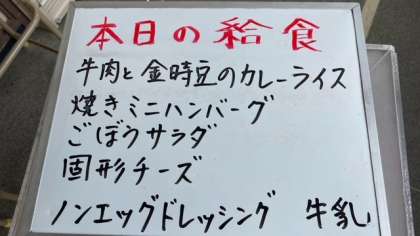 本日の給食
牛肉と金時豆のカレーライス
焼きミニハンバーグ
ごぼうサラダ
固形チーズ
ノンエッグドレッシング 牛乳